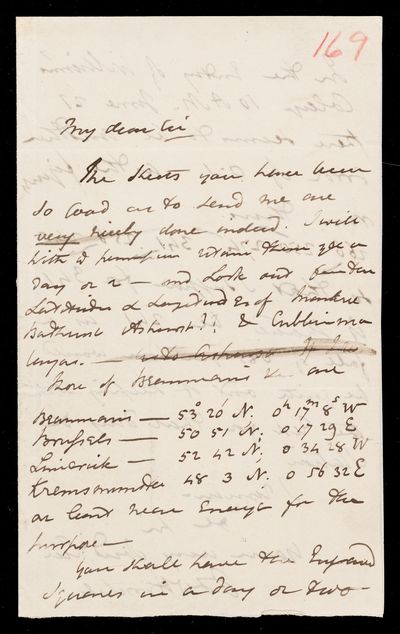 169
My dear Sir
The Sheets you have been
so good as to send me are
very nicely done indeed. I will
with permission retain these yet a
day or 2 — and look out for the
Latitudes & Longitudes of
Bathurst Ashurst?! &
Those of Beaumaris &c are
Beaumaris — 53° 20' N. 0h 17m 8s W
Brussels — 50 51 N. 0 17 29 E
Limerick — 52 42 N. 0 34 28 W
Kremsmunster 48 3 N. 0 56 32 E
at least near enough for the
purpose —
You shall have the Engraved
Squares in a day or two —